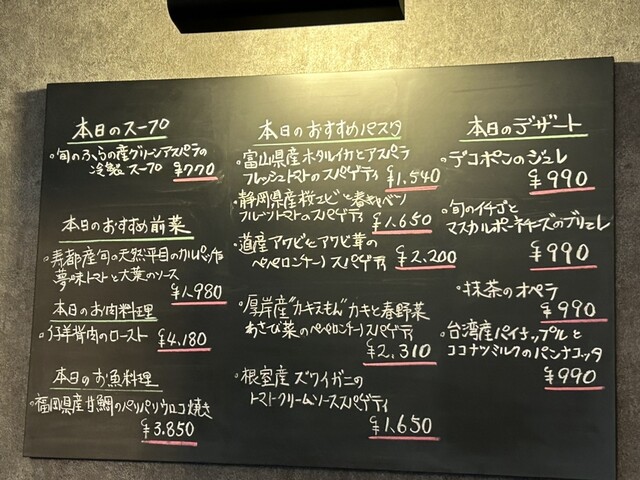 本日のスープ
・旬のふらの産グリーンアスパラの
冷製スープ ¥770
本日のおすすめ前菜
・寿都産旬の天然平目のカルパッチョ
夢味トマトと大葉のソース
¥1,980
本日のお肉料理
・仔羊背肉のロースト ¥4,180
本日のお魚料理
・福岡県産甘鯛のパリパリウロコ焼き
¥3,850
本日のおすすめパスタ
・富山県産ホタルイカとアスパラ
フレッシュトマトのスパゲティ ¥1,540
・静岡県産桜エビと春キャベツ
フルーツトマトのスパゲティ ¥1,650
・道産アワビとアワビ茸の
ペペロンチーノスパゲティ ¥2,200
・厚岸産"カキえもん"カキと春野菜
あさひ菜のペペロンチーノスパゲティ
¥2,310
・根室産ズワイガニの
トマトクリームソーススパゲティ
¥1,650
本日のデザート
・デコポンのジュレ
¥990
・旬のイチゴと
マスカルポーネチーズのブリュレ
¥990
・抹茶のオペラ
¥990
・台湾産パイナップルと
ココナツミルクのパンナコッタ
¥990